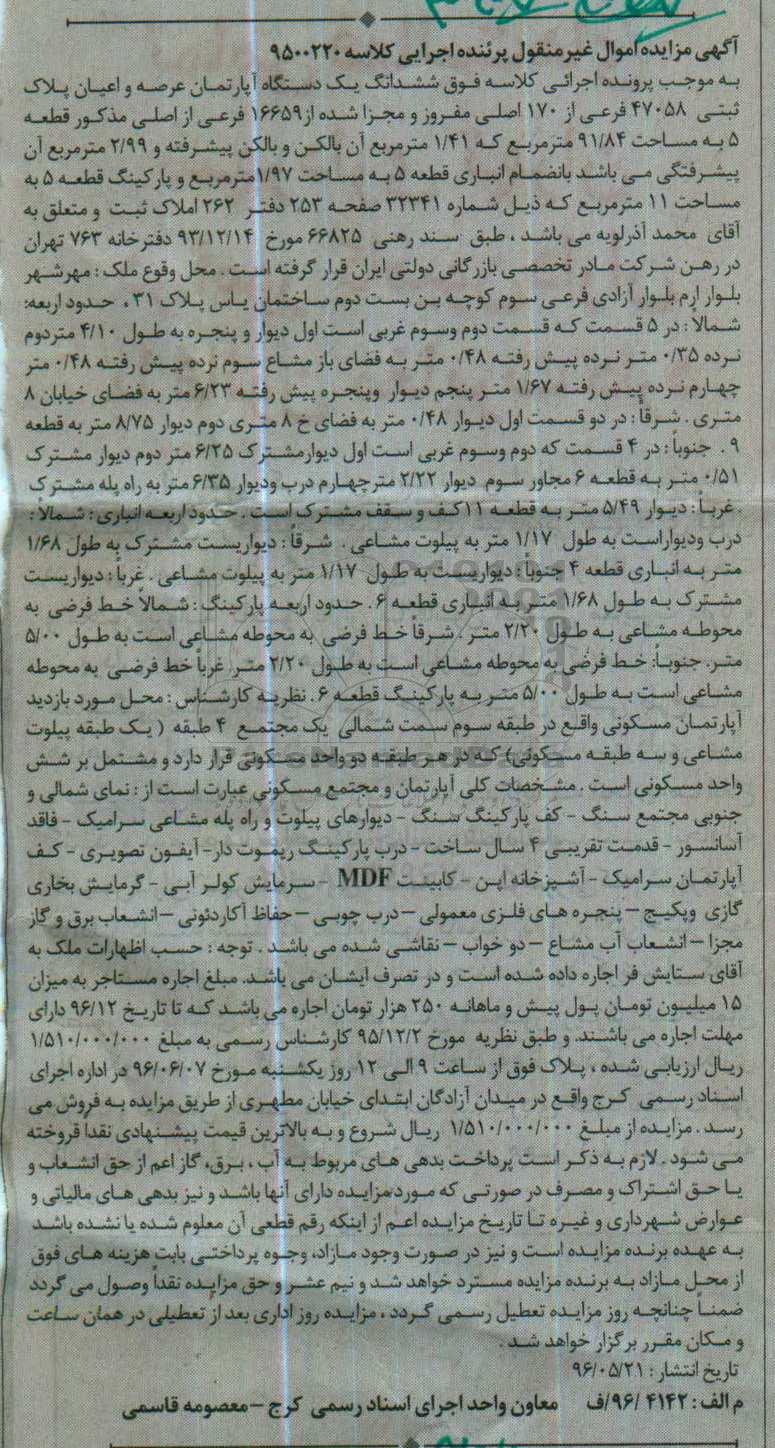 آگهی مزایده اموال غیرمنقول پرئنده اجرایی کلاسه ۹۵۰۰۲۲۰
به موجب پرونده اجرائی کلاسه فوق ششدانگ یک دستگاه آپارتمان عرصه و اعیان پلاک
ثبتی ۴۷۰۵۸ فرعی از ۱۷۰ اصلی مفروز و مجزا شده از ۱۶۶۵۹ فرعی از اصلی مذکور قطعه
۵ به مساحت ۹۱/۸۴ مترمربع که ۱/۴۱ مترمربع آن بالکن و بالکن پیشرفته و ۲/۹۹ مترمربع آن
پیشرفتگی می باشد بانضمام انباری قطعه ۵ به مساحت ۱/۹۷مترمربع و پارکینگ قطعه ۵ به
مساحت ۱۱ مترمربع که ذیل شماره ۳۲۳۴۱ صفحه ۲۵۳ دفتر ۲۶۲ املاک ثبت و متعلق به
آقای محمد آذرلویه می باشد ، طبق سند رهنی ۶۶۸۲۵ مورخ ۹۳/۱۲/۱۴ دفترخانه ۷۶۳ تهران
در رهن شرکت مادر تخصصی بازرگانی دولتی ایران قرار گرفته است . محل وقوع ملک : مهرشهر
بلوار ارم بلوار آزادی فرعی سوم کوچه بن بست دوم ساختمان یاس پلاک ۳۱ ، حدود اربعه:
شمالاً : در ۵ قسمت که قسمت دوم وسوم غربی است اول دیوار و پنجره به طول ۴/۱۰ متردوم
نرده ۰/۳۵ متر نرده پیش رفته ۰/۴۸ متر به فضای باز مشاع سوم نرده پیش رفته ۰/۴۸ متر
چهارم نرده پیش رفته ۱/۶۷ متر پنجم دیوار وپنجره پیش رفته ۶/۲۳ متر به فضای خیابان ۸
متری . شرقاً : در دو قسمت اول دیوار ۰/۴۸ متر به فضای خ ۸ متری دوم دیوار ۸/۷۵ متر به قطعه
۹ . جنوباً : در ۴ قسمت که دوم وسوم غربی است اول دیوارمشترک ۶/۲۵ متر دوم دیوار مشترک
۰/۵۱ متر به قطعه ۶ مجاور سوم دیوار ۲/۲۲ مترچهارم درب ودیوار ۶/۳۵ متر به راه پله مشترک
. غرباً : دیوار ۵/۴۹ متر به قطعه ۱۱کف و سقف مشترک است . حدود اربعه انباری : شمالاً :
درب ودیواراست به طول ۱/۱۷ متر به پیلوت مشاعی . شرقاً : دیواریست مشترک به طول ۱/۶۸
متر به انباری قطعه ۴ جنوباً : دیواریست به طول ۱/۱۷ متر به پیلوت مشاعی . غرباً : دیواریست
مشترک به طول ۱/۶۸ متر به انباری قطعه ۶ . حدود اربعه پارکینگ : شمالاً خط فرضی به
محوطه مشاعی به طول ۲/۲۰ متر . شرقاً خط فرضی به محوطه مشاعی است به طول ۵/۰۰
متر. جنوباً: خط فرضی به محوطه مشاعی است به طول ۲/۲۰ متر. غرباً خط فرضی به محوطه
مشاعی است به طول ۵/۰۰ متر به پارکینگ قطعه ۶ . نظریه کارشناس : محل مورد بازدید
آپارتمان مسکونی واقع در طبقه سوم سمت شمالی یک مجتمع ۴ طبقه ( یک طبقه پیلوت
مشاعی و سه طبقه مسکونی) که در هر طبقه دو واحد مسکونی قرار دارد و مشتمل بر شش
واحد مسکونی است . مشخصات کلی آپارتمان و مجتمع مسکونی عبارت است از : نمای شمالی و
جنوبی مجتمع سنگ – کف پارکینگ سنگ – دیوارهای پیلوت و راه پله مشاعی سرامیک – فاقد
آسانسور – قدمت تقریبی ۴ سال ساخت – درب پارکینگ ریموت دار– آیفون تصویری – کف
آپارتمان سرامیک – آشپزخانه اپن – کابینت MDF – سرمایش کولر آبی – گرمایش بخاری
گازی وپکیج – پنجره های فلزی معمولی –درب چوبی – حفاظ آکاردئونی –انشعاب برق و گاز
مجزا – انشعاب آب مشاع – دو خواب – نقاشی شده می باشد . توجه : حسب اظهارات ملک به
آقای ستایش فر اجاره داده شده است و در تصرف ایشان می باشد. مبلغ اجاره مستاجر به میزان
۱۵ میلیون تومان پول پیش و ماهانه ۲۵۰ هزار تومان اجاره می باشد که تا تاریخ ۹۶/۱۲ دارای
مهلت اجاره می باشند. و طبق نظریه مورخ ۹۵/۱۲/۲ کارشناس رسمی به مبلغ ۱/۵۱۰/۰۰۰/۰۰۰
ریال ارزیابی شده ، پلاک فوق از ساعت ۹ الی ۱۲ روز یکشنبه مورخ ۹۶/۰۶/۰۷ در اداره اجرای
اسناد رسمی کرج واقع در میدان آزادگان ابتدای خیابان مطهری از طریق مزایده به فروش می
رسد . مزایده از مبلغ ۱/۵۱۰/۰۰۰/۰۰۰ ریال شروع و به بالاترین قیمت پیشنهادی نقداً فروخته
می شود . لازم به ذکر است پرداخت بدهی های مربوط به آب ، برق، گاز اعم از حق انشعاب و
یا حق اشتراک و مصرف در صورتی که مورد مزایده دارای آنها باشد و نیز بدهی های مالیاتی و
عوارض شهرداری و غیره تا تاریخ مزایده اعم از اینکه رقم قطعی آن معلوم شده یا نشده باشد
به عهده برنده مزایده است و نیز در صورت وجود مازاد، وجوه پرداختی بابت هزینه های فوق
از محل مازاد به برنده مزایده مسترد خواهد شد و نیم عشر و حق مزایده نقداً وصول می گردد
ضمناً چنانچه روز مزایده تعطیل رسمی گردد ، مزایده روز اداری بعد از تعطیلی در همان ساعت
و مکان مقرر برگزار خواهد شد .
تاریخ انتشار : ۹۶/۰۵/۲۱
م الف : ۴۱۴۲ /۹۶/ف معاون واحد اجرای اسناد رسمی کرج – معصومه قاسمی